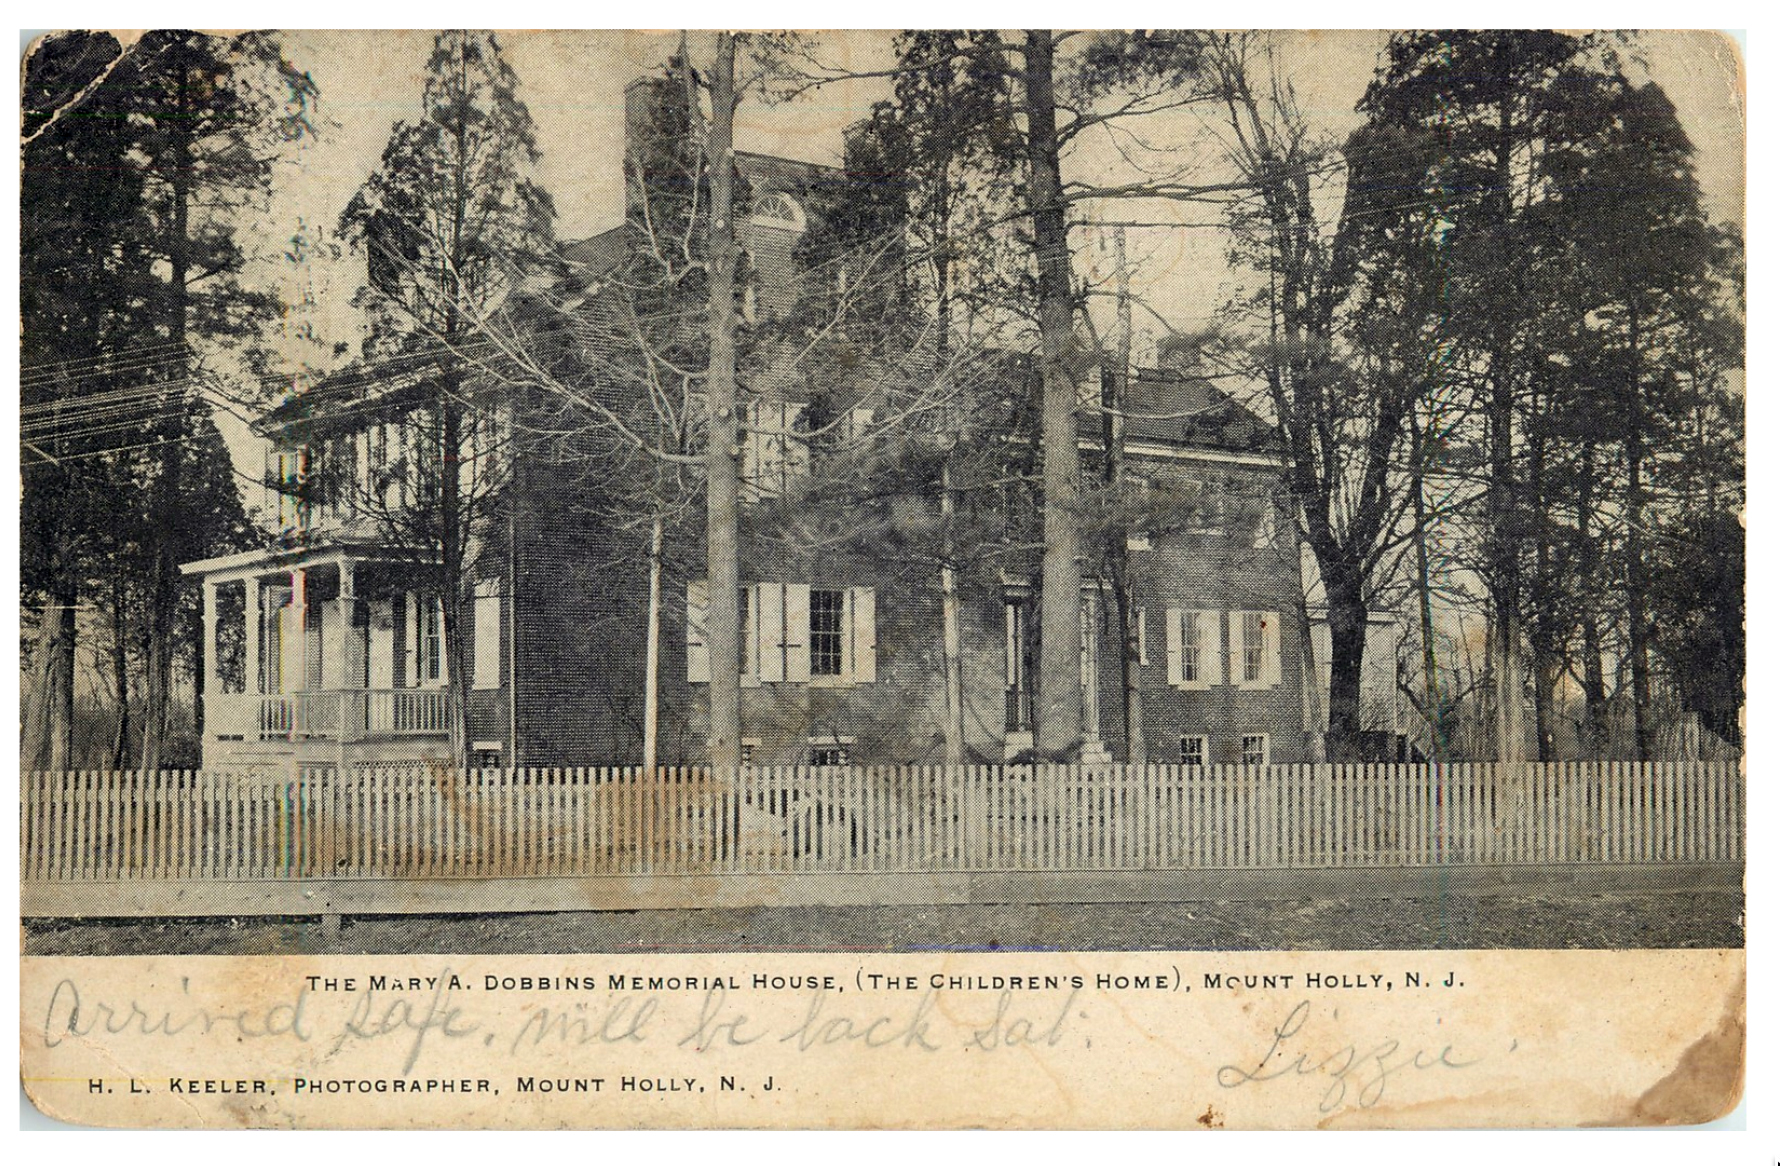 THE MARY A. DOBBINS MEMORIAL HOUSE, (THE CHILDREN'S HOME), MOUNT HOLLY, N. J.
Arrived safe, will be back Sat.
Lizzie.
H. L. KEELER, PHOTOGRAPHER, MOUNT HOLLY, N. J.